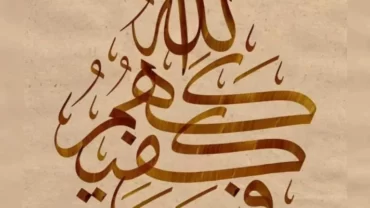 فَسَيَكْفِيكَهُمُ اللهُ